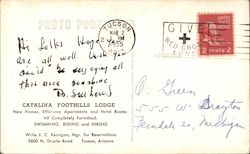 PHOTO POST
TUCSON
MAR 2
1955
GIVE
RED CROSS
FUND
2 CENTS 2
Hi Folks Hope
are all well Wish you
could be enjoying all
this nice sunshine
CATALINA FOOTHILLS LODGE
New Homes, Efficiency Apartments and Hotel Rooms
All Completely Furnished.
SWIMMING, RIDING and HIKING
Write J. C. Kerrigan, Mgr. for Reservations
5600 N. Oracle Road Tucson, Arizona
Green
555 W Drayton
Ferndale 20, Michigan